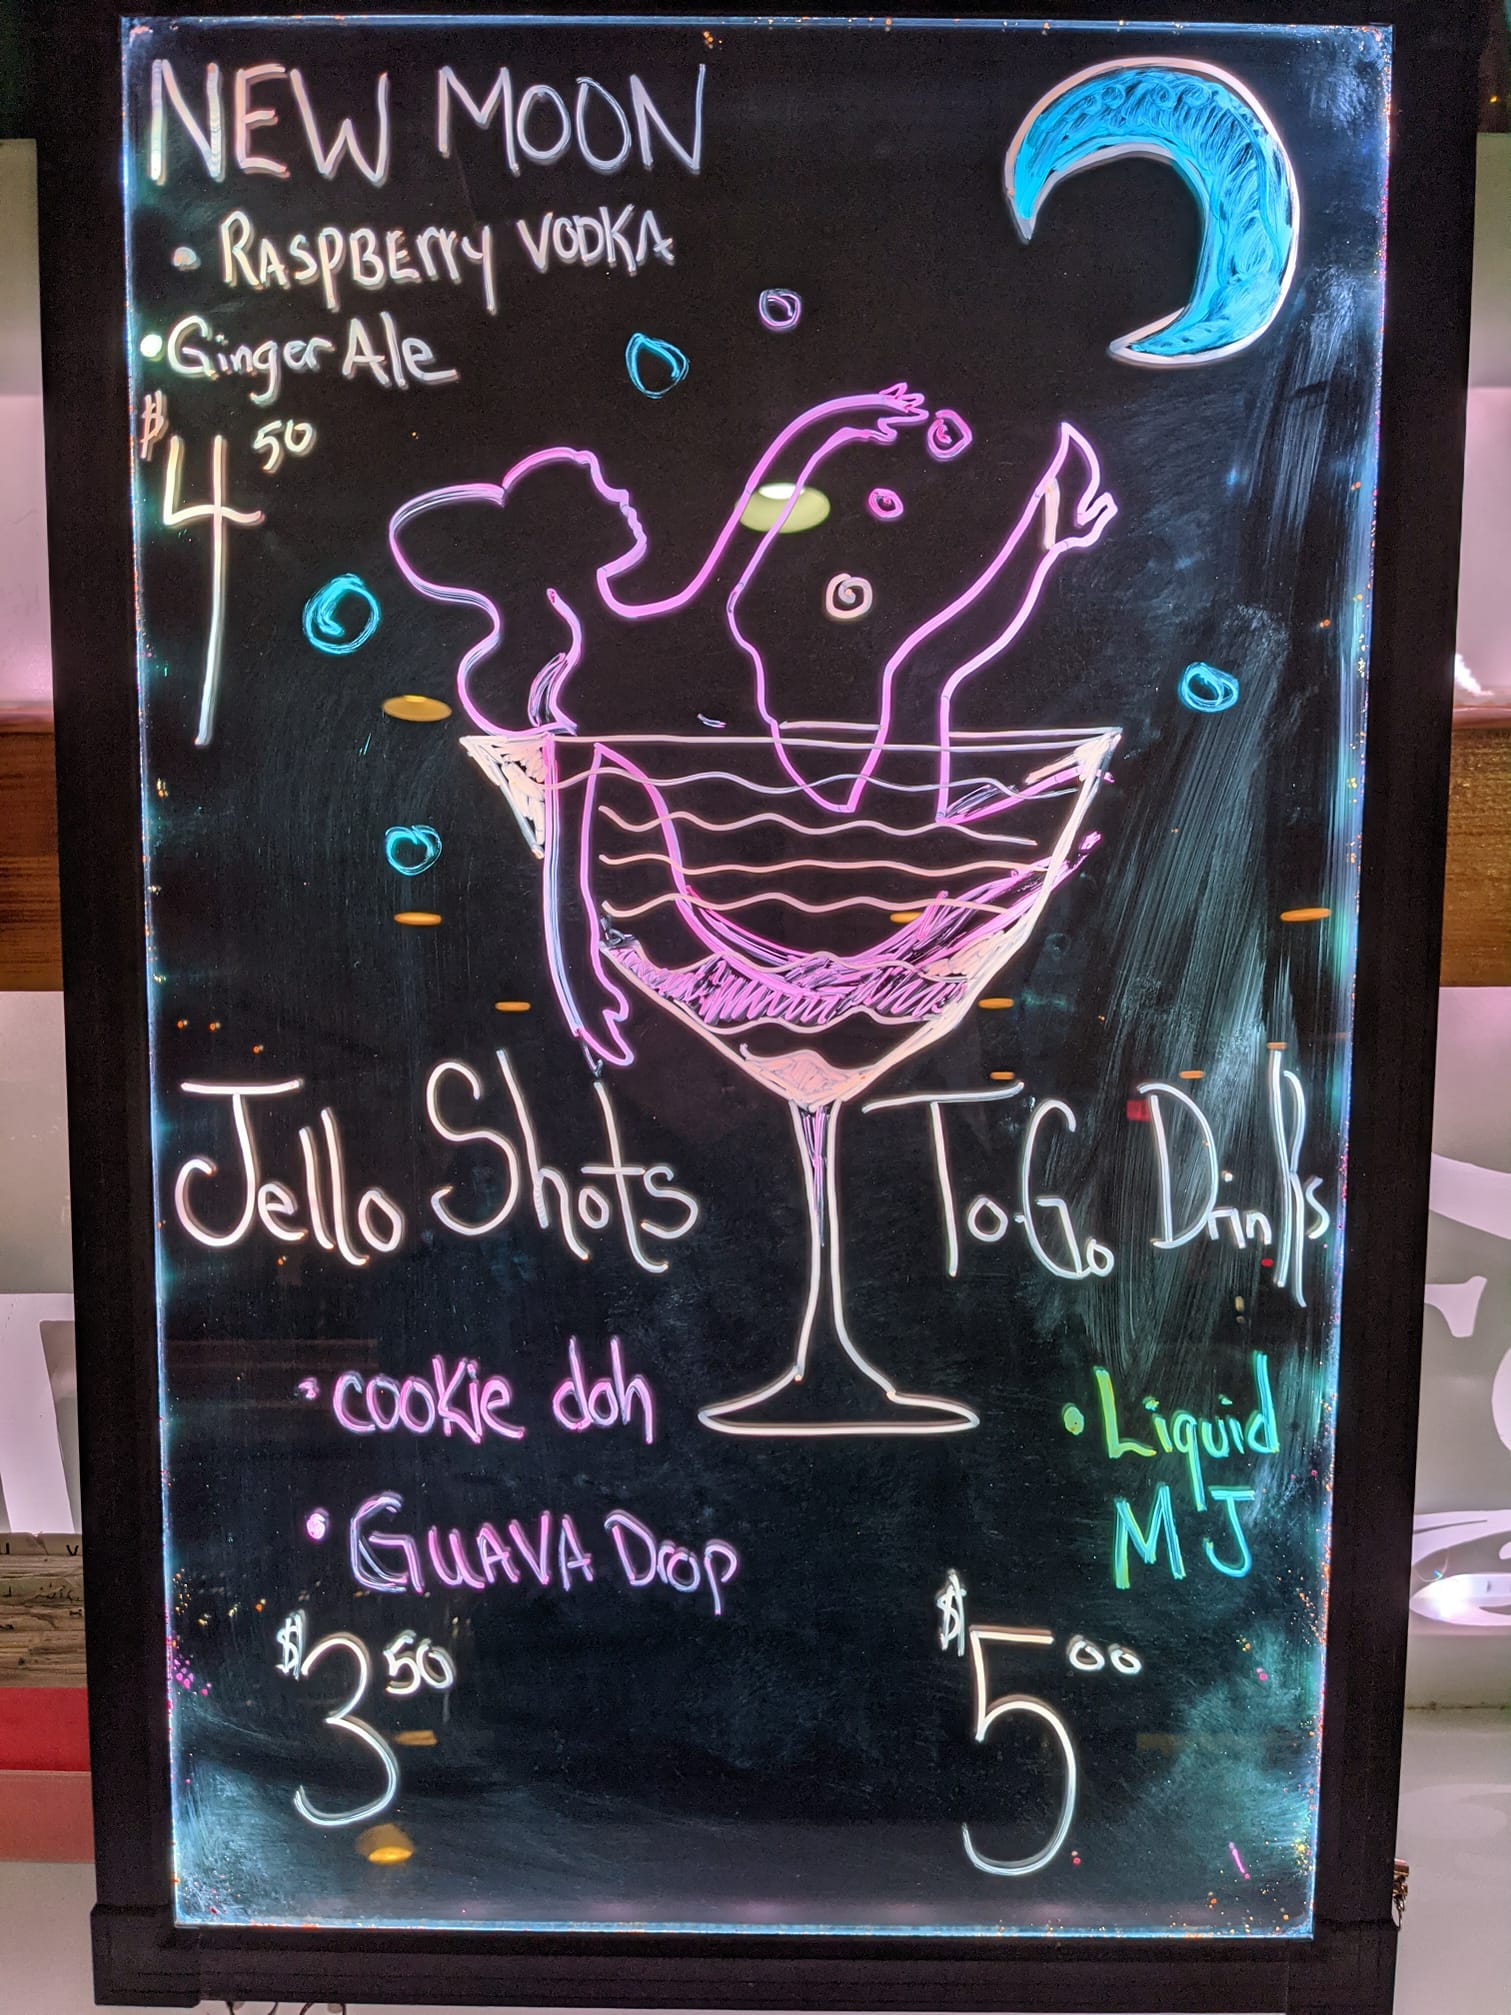 NEW MOON
• RASPBErry VODKA
• Ginger Ale
$4 50
Jello Shots
• cookie doh
• GUAVA Drop
$3 50
To-Go Drinks
• Liquid
MJ
$5 00